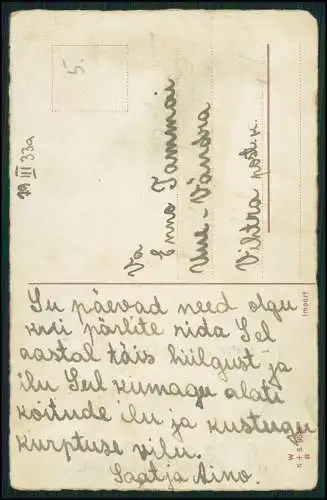 5.
29 III 33a
Va
Enno Tammai
Uue-Vändra
Vihtra postk.
Su päevad need olgu
kui pärlite rida Sel
aastal täis hiilgust ja
ilu Sul kumagu alati
koitude ilu ja kustugu
kurptuse vilu.
Saatja Aino.
Import